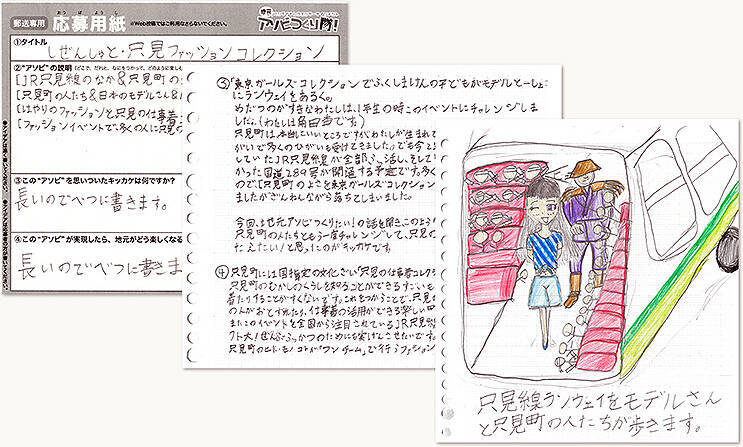 郵送専用
おうぼようし
応募用紙
※Web投稿ではご利用なさらないでください。
地元
アソビつくり隊!
①タイトル
しぜんしゅと・只見ファッションコレクション
②"アソビ"の説明
[JR只見線のなか&只見町の
[只見町の人たち&日本のモデルさん&
[はやりのファッションと只見の仕事着
[ファッションイベントで多くの人に只見の
③この"アソビ"を思いついたキッカケは何ですか?
長いのでべつに書きます。
④この"アソビ"が実現したら、地元がどう楽しくなる
長いのでべつに書きま
③「東京ガールズコレクションでふくしまけんの子どもがモデルと一しょ
にランウェイをあるく。
めだつのがすきなわたしは、1年生の時このイベントにチャレンジしま
した。(わたしは角田杏です。)
只見町は本当にいいところですがわたしが生まれて
がいで多くのひがいを受けてきました。でも今と
していたJR只見線が全部ふっ活し、そして
かった国道289号が開通する予定です。多く
ので「只見町のよさを東京ガールズコレクション
ましたがざんねんながら落ちてしまいました。
今回、地元アソビつくりたい!の話を聞き、このとき
只見町の人たちともう一度チャレンジして、只見の
たえたい!と思ったのがキッカケです。
④只見町には国指定の文化ざい「只見の仕事着コレク
只見町のむかしのくらしを知ることができるすごいも
着たりすることがすくないです。これをつかうことで、只見
の人がおとずれたり、仕事着の活用ができる楽しい町
またこのイベントを全国から注目されているJR只見線
クト大!ぜんぶふっかつのためにも実げんさせたいです。
只見町のヒト・モノ・コトが「ワンチーム」で行うファッション
只見線ランウェイをモデルさん
と只見町の人たちが歩きます。